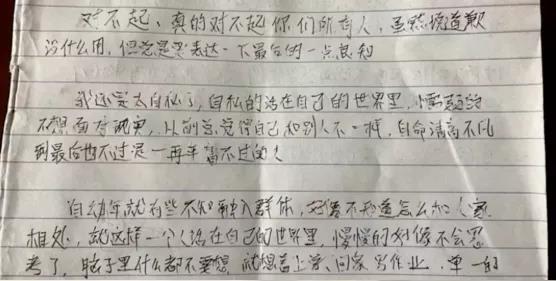 对不起、真的对不起你们所有人，虽然说道歉
没什么用，但总是要表达一下最后的一点良知
我还是太自私了，自私的活在自己的世界里，
不想面对现实，从前总觉得自己和别人不一样，自命清高不凡
到最后也不过是一再平常不过的人
自幼年就有些不知融入群体，好像不知道怎么和人家
相处，就这样一个人活在自己的世界里，慢慢的好像不会思
考了，脑子里什么都不要想，就想着上学、回家写作业，单一的